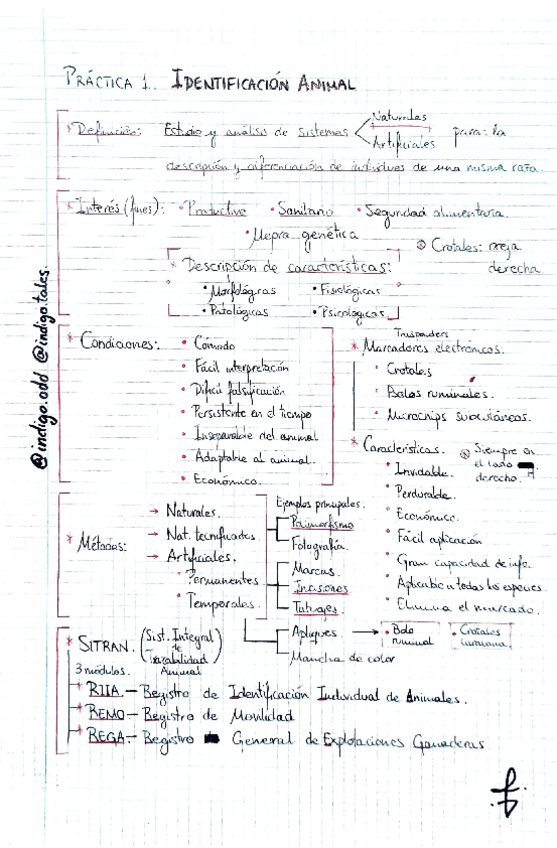 PRÁCTICA 1.. IDENTIFICACIÓN ANIMAL
* Definición: Estudio y análisis de sistemas Naturales Artificiales para: la
descripción y diferenciación de individuos de una misma raza.
* Interés (fines): • Productivo • Sanitario • Seguridad alimentaria.
• Mejora genética
* Descripción de características:
• Morfológicas • Fisiológicas
• Patológicas • Psicológicas
Crotales: oreja
derecha
* Condiciones: • Cómodo
• Fácil interpretación
• Difícil falsificación
• Persistente en el tiempo
• Inseparable del animal
• Adaptable al animal.
• Económico.
Trasponders
* Marcadores electrónicos.
• Crotales
• Bolos ruminales.
• Microchips subcutáneos.
* Características.
Siempre en
el lado
derecho.
• Inviolable.
• Perdurable.
• Económico.
• Fácil aplicación
• Gran capacidad de info.
• Aplicable a todas las especies
• Elimina el marcado.
* Métodos:
→ Naturales.
→ Nat. tecnificados.
→ Artificiales.
• Permanentes
• Temporales.
Ejemplos principales.
Polimorfismo
Fotografía.
Marcas.
Incisiones
Tatuajes
Apliques. → • Bolo ruminal • Crotales
Mancha de color
* SITRAN. (Sist. Integral de Trazabilidad Animal)
3 módulos.
* RIIA.- Registro de Identificación Individual de Animales.
* REMO- Registro de Movilidad
* REGA- Registro General de Explotaciones Ganaderas
@indigo.odd @indigo.tales.